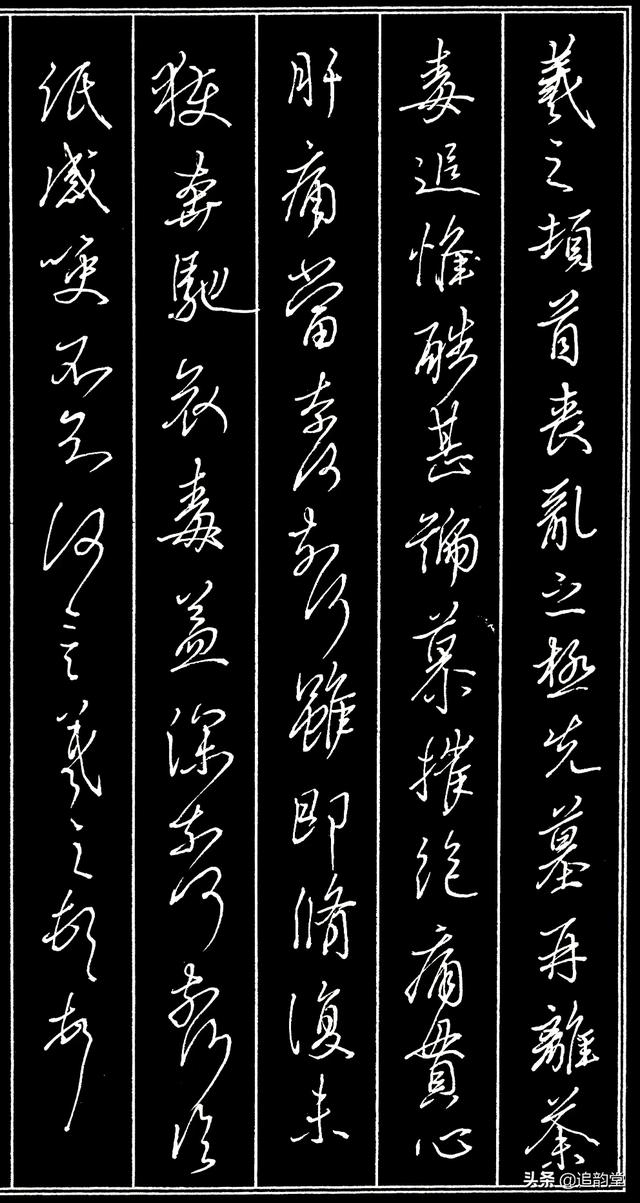 羲之頓首喪亂之極先墓再離荼
毒追惟酷甚號慕摧絕痛貫心
肝痛當奈何奈何雖即脩復未
獲奔馳哀毒益深奈何奈何臨
紙感哽不知何言羲之頓首頓首
头条 @追韵堂